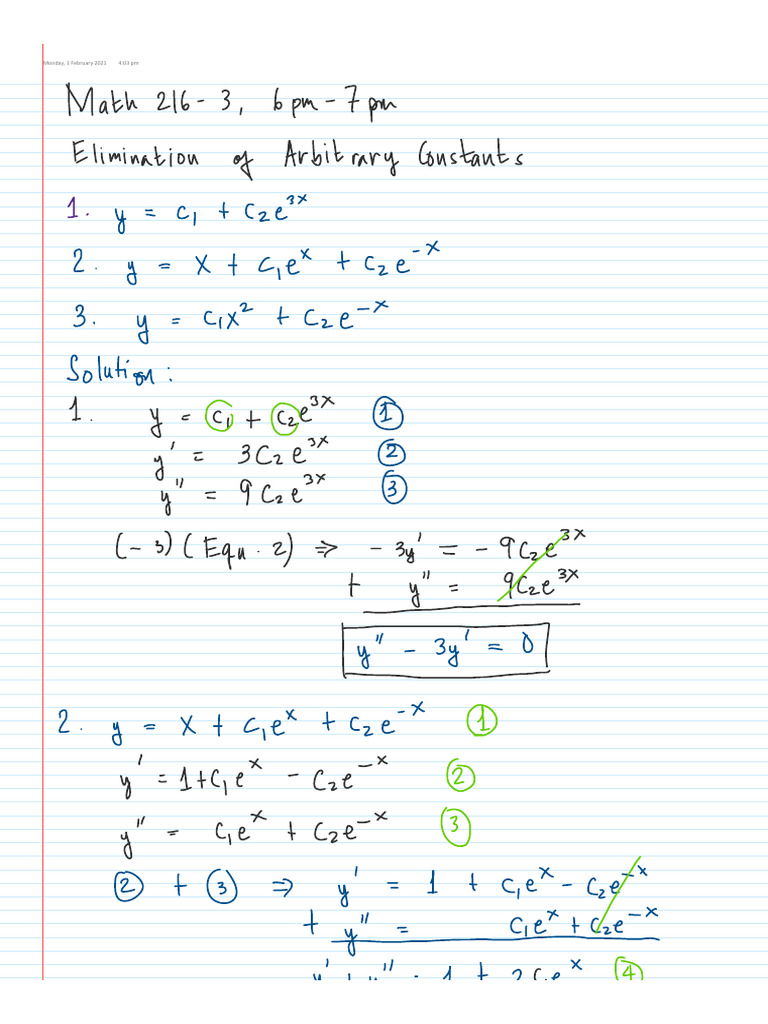 Monday, 1 February 2021 4:03 pm
Math 216 - 3, 6 pm - 7 pm
Elimination of Arbitrary Constants
1. y = c₁ + c₂e³ˣ
2. y = x + c₁eˣ + c₂e⁻ˣ
3. y = c₁x² + c₂e⁻ˣ
Solution:
1. y = c₁ + c₂e³ˣ ①
y' = 3c₂e³ˣ ②
y'' = 9c₂e³ˣ ③
(-3)(Equ. 2) ⇒ -3y' = -9c₂e³ˣ
+ y'' = 9c₂e³ˣ
y'' - 3y' = 0
2. y = x + c₁eˣ + c₂e⁻ˣ ①
y' = 1 + c₁eˣ - c₂e⁻ˣ ②
y'' = c₁eˣ + c₂e⁻ˣ ③
② + ③ ⇒ y' = 1 + c₁eˣ - c₂e⁻ˣ
+ y'' = c₁eˣ + c₂e⁻ˣ
y' + y'' = 1 + 2c₁eˣ ④